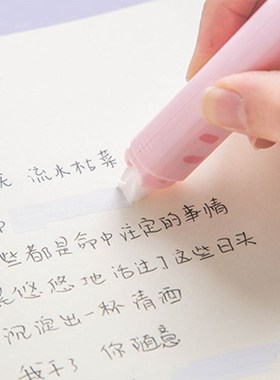 流水枯菜
些都是命中注定的事情
悠悠地活过了这些日头
沉淀出一杯清酒
我干了 你随意